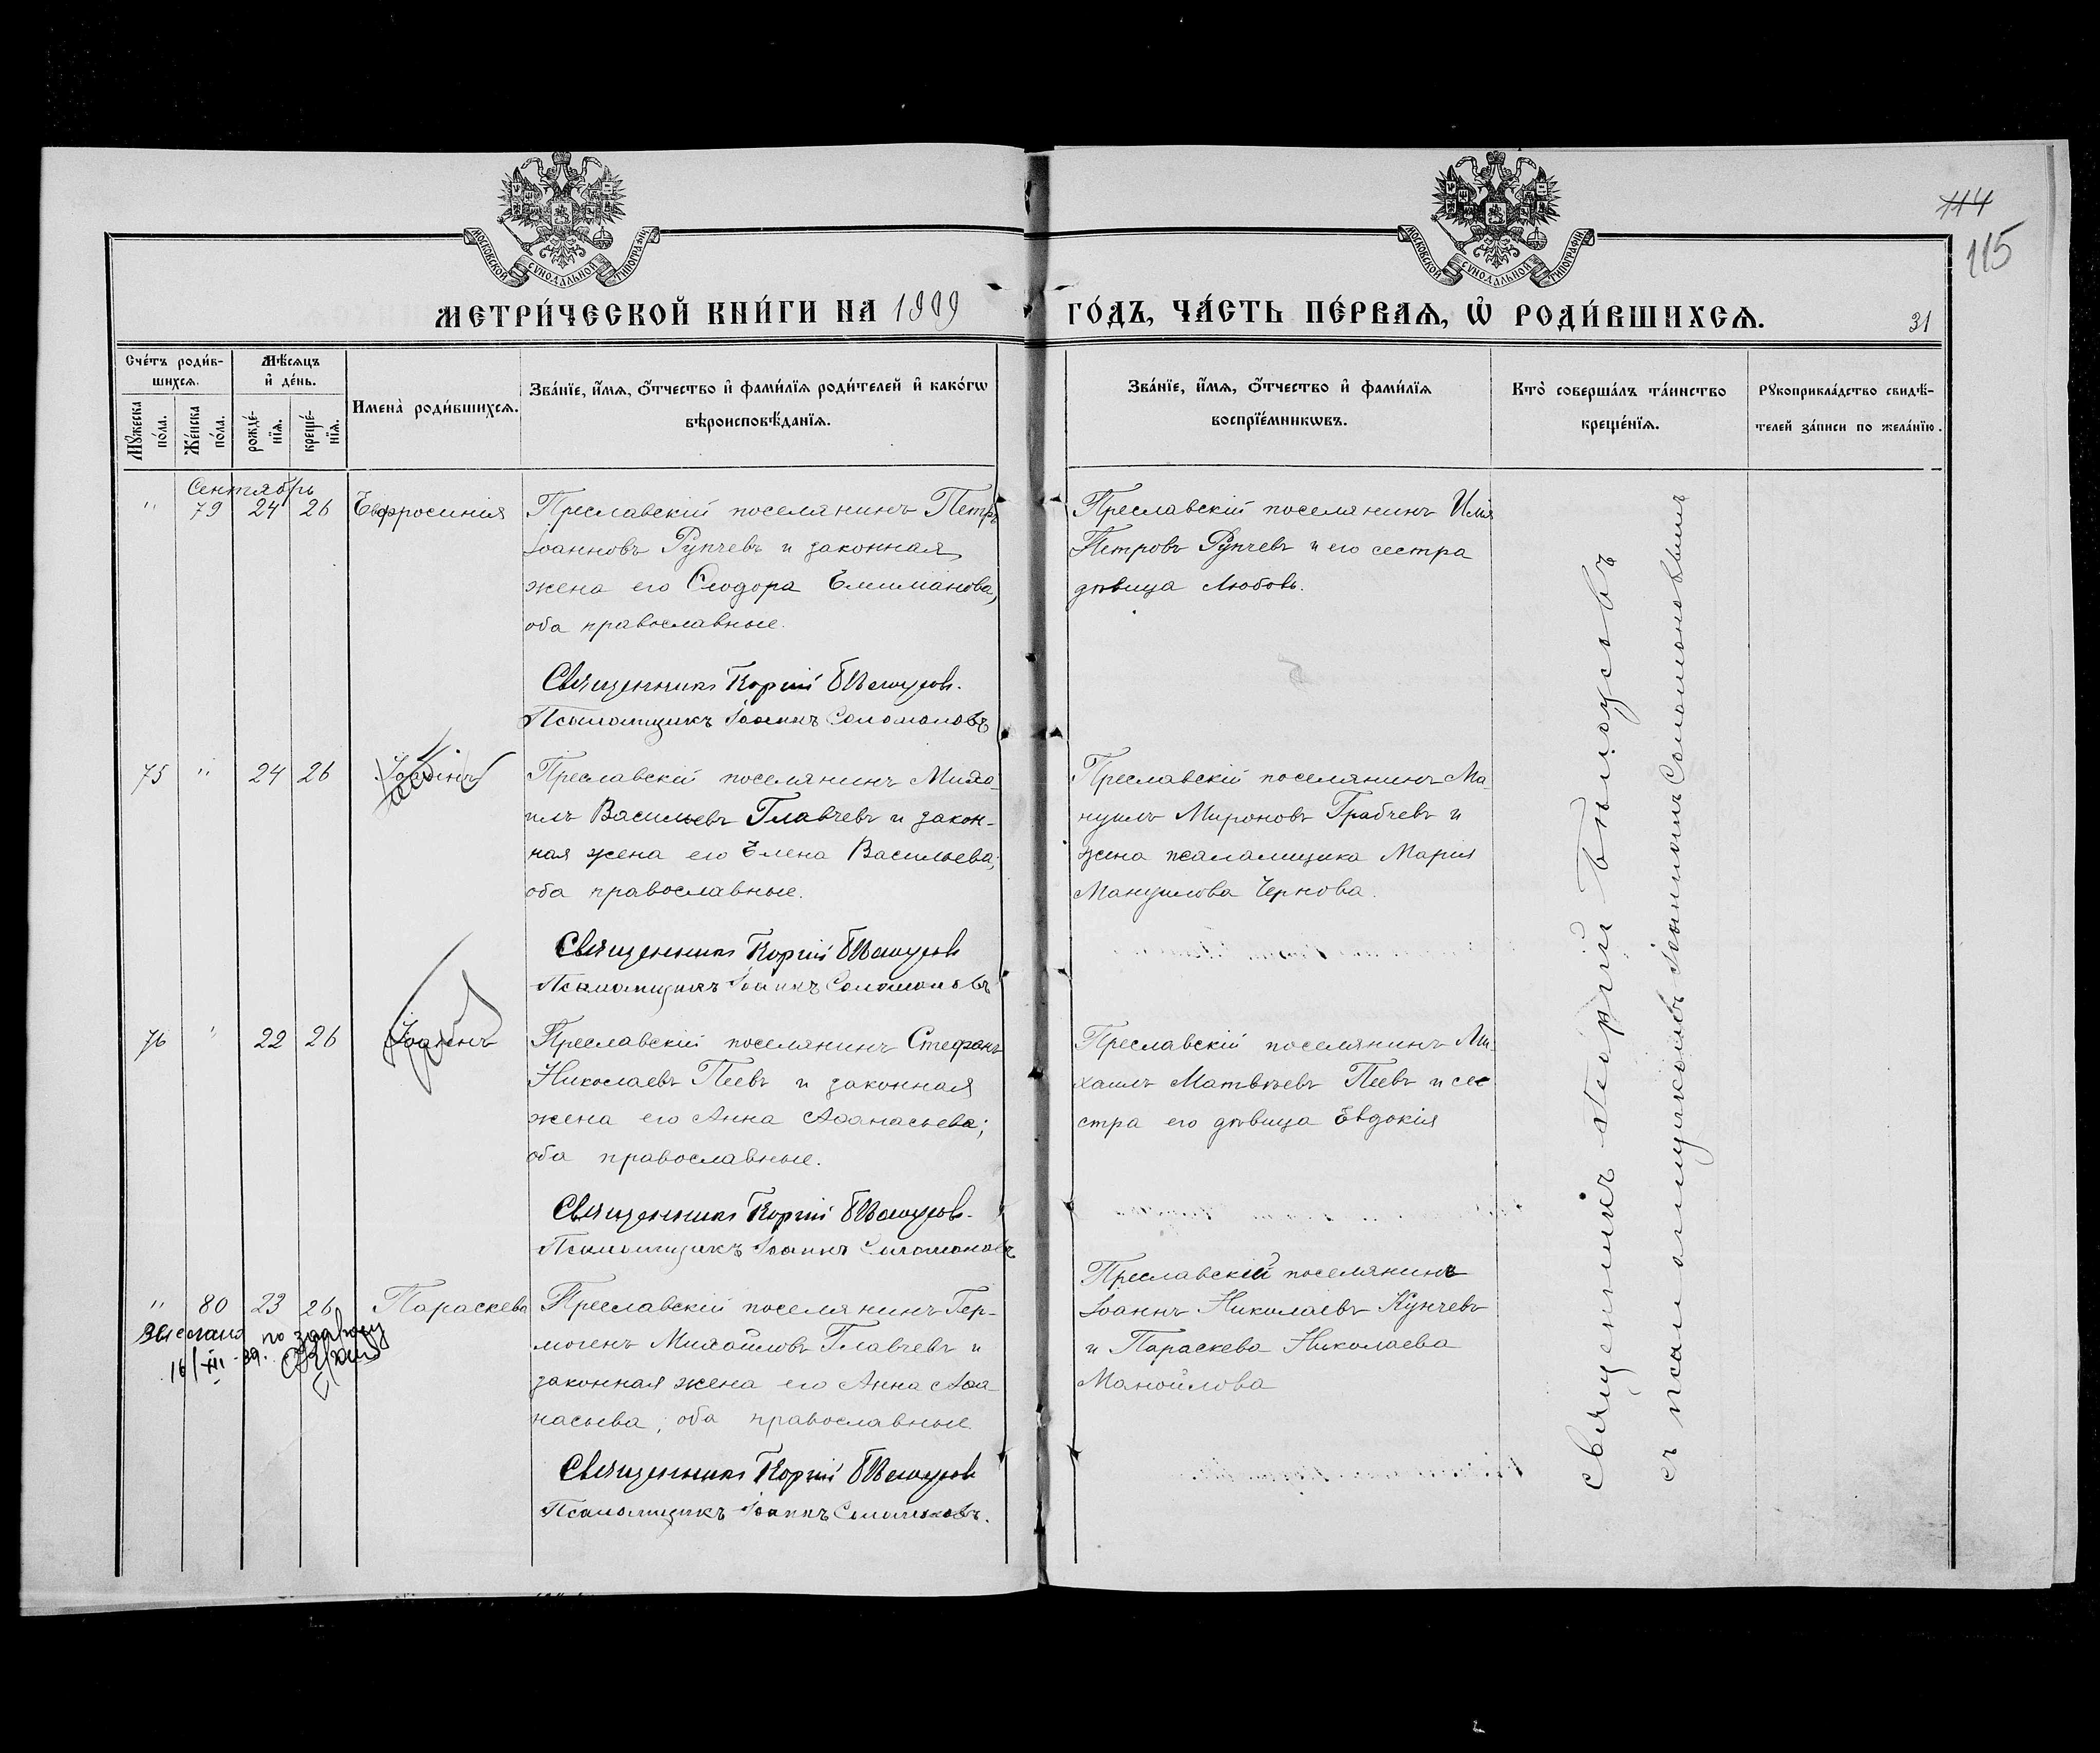 МОСКОВСКОЙ СѴНОДАЛЬНОЙ ТИПОГРАФІИ
МОСКОВСКОЙ СѴНОДАЛЬНОЙ ТИПОГРАФІИ
114
115
МЕТРИ́ЧЕСКОЙ КНИ́ГИ НА 1909
ГО́ДЪ, ЧА́СТЬ ПЕ́РВАѦ, Ѡ҆ РОДИ́ВШИХСѦ.
31
Сче́тъ роди́в-
шихсѧ.
Мꙋ́жеска по́ла.
Же́нска по́ла.
Мѣ́сѧцъ
и҆ де́нь.
рожде́-нїѧ.
креще́-нїѧ.
Имена̀ роди́вшихсѧ.
Зва́нїе, и҆́мѧ, ѻ҆́тчество и҆ фами́лїѧ роди́телей и҆ како́гѡ
вѣроисповѣ́данїѧ.
Зва́нїе, и҆́мѧ, ѻ҆́тчество и҆ фами́лїѧ
воспрїе́мникѡвъ.
Кто̀ соверша́лъ та́инство
креще́нїѧ.
Рꙋкоприкла́дство свидѣ́-
телей за́писи по жела́нїю.
Сентябрь
" 79 24 26 Евфросинія
Преславскій поселянинъ Петръ
Іоанновъ Рупчевъ и законная
жена его Ѳеодора Емиліанова,
оба православные.
Священникъ Георгій
Псаломщикъ Іоаннъ Соломоновъ
Преславскій поселянинъ Илія
Петровъ Рупчевъ и его сестра
дѣвица Любовь.
75 " 24 26 Іоаннъ
Преславскій поселянинъ Миха-
илъ Васильевъ Главчевъ и закон-
ная жена его Елена Васильева,
оба православные.
Священникъ Георгій
Псаломщикъ Іоаннъ Соломоновъ
Преславскій поселянинъ Ма-
нуилъ Мироновъ Грабчевъ и
жена псаломщика Марія
Мануилова Чернова.
76 " 22 26 Іоаннъ
Преславскій поселянинъ Стефанъ
Николаевъ Пеевъ и законная
жена его Анна Аѳанасьева;
оба православные.
Священникъ Георгій
Псаломщикъ Іоаннъ Соломоновъ
Преславскій поселянинъ Ми-
хаилъ Матвѣевъ Пеевъ и сес
стра его дѣвица Евдокія
" 80 23 26 Параскева
16/XII-39.
Преславскій поселянинъ Гер-
могенъ Михайловъ Главчевъ и
законная жена его Анна Аѳа-
насьева; оба православные.
Священникъ Георгій
Псаломщикъ Іоаннъ Соломоновъ.
Преславскій поселянинъ
Іоаннъ Николаевъ Кунчевъ
и Параскева Николаева
Манойлова
Священникъ Георгій
съ псаломщикомъ Іоанномъ Соломоновымъ